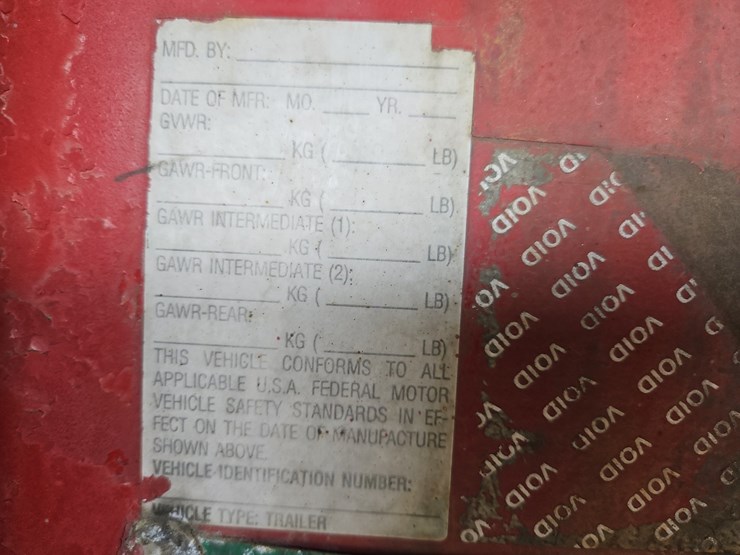 MFD. BY:
DATE OF MFR: MO. YR.
GVWR:
KG ( LB)
GAWR-FRONT:
KG ( LB)
GAWR INTERMEDIATE (1):
KG ( LB)
GAWR INTERMEDIATE (2):
KG ( LB)
GAWR-REAR:
KG ( LB)
THIS VEHICLE CONFORMS TO ALL
APPLICABLE U.S.A. FEDERAL MOTOR
VEHICLE SAFETY STANDARDS IN EF-
FECT ON THE DATE OF MANUFACTURE
SHOWN ABOVE.
VEHICLE IDENTIFICATION NUMBER:
VEHICLE TYPE: TRAILER
VOID VOID VOID VOID
VOID VOID VOID VOID
VOID VOID VOID VOID
VOID VOID VOID VOID
VOID VOID VOID VOID